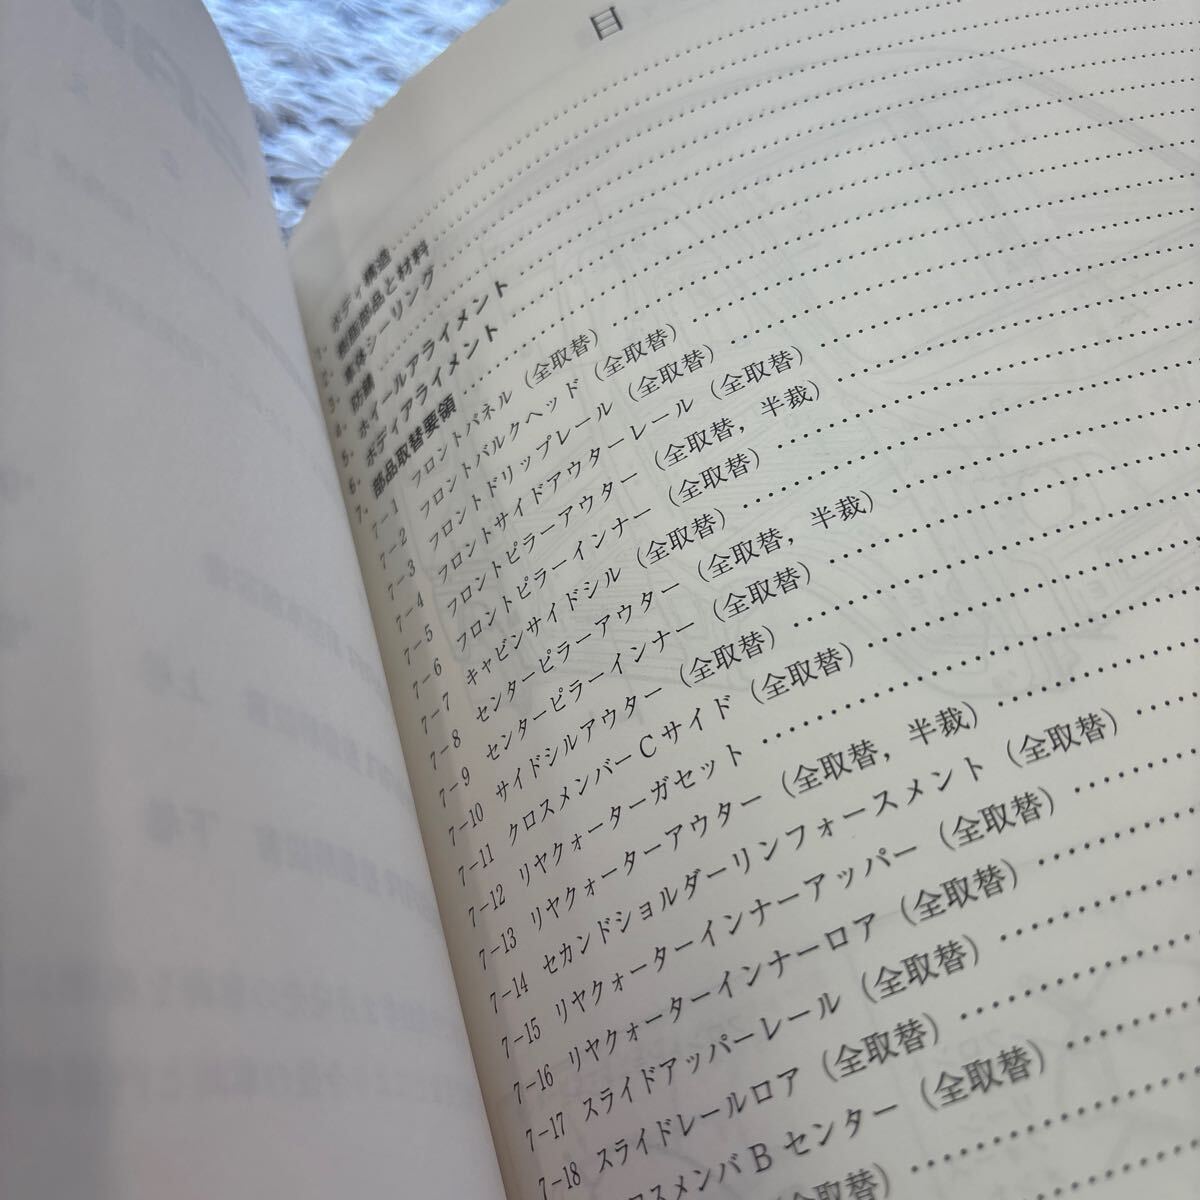 目
1. ボディ構造
2. 樹脂部品と材料
3. 車体シーリング
4. 防錆
5. ホイールアライメント
6. ボディアライメント
7. 部品取替要領
7-1 フロントパネル（全取替）
7-2 フロントバルクヘッド（全取替）
7-3 フロントドリップレール（全取替）
7-4 フロントサイドアウターレール（全取替）
7-5 フロントピラーアウター（全取替，半裁）
7-6 フロントピラーインナー（全取替）
7-7 キャビンサイドシル（全取替）
7-8 センターピラーアウター（全取替，半裁）
7-9 センターピラーインナー（全取替）
7-10 サイドシルアウター（全取替）
7-11 クロスメンバーCサイド（全取替）
7-12 リヤクォーターガセット
7-13 リヤクォーターアウター（全取替，半裁）
7-14 セカンドショルダーリンフォースメント（全取替）
7-15 リヤクォーターインナーアッパー（全取替）
7-16 リヤクォーターインナーロア（全取替）
7-17 スライドアッパーレール（全取替）
7-18 スライドレールロア（全取替）
ロスメンバBセンター（全取替）
（全取替）